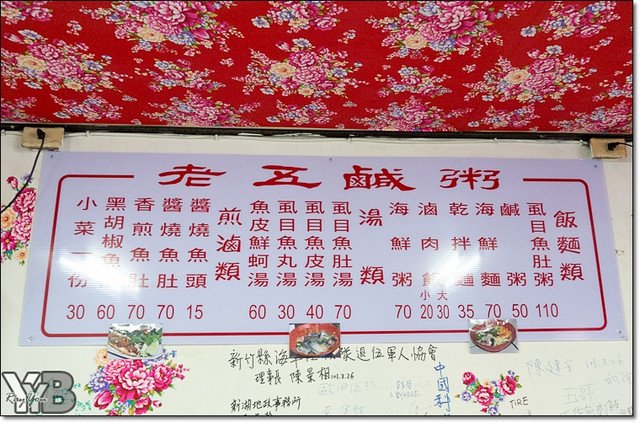 老五鹹粥
飯麵類
虱目魚肚粥 110
鹹粥 50
海鮮麵 70
乾拌麵 35
滷肉飯 小20 大30
海鮮粥 70
湯類
虱目魚肚湯 70
虱目魚皮湯 40
虱目魚丸湯 30
魚皮鮮蚵湯 60
煎滷類
醬燒魚頭 15
醬燒魚肚 70
香煎魚肚 70
黑胡椒魚 60
小菜一份 30
新竹縣海 退伍軍人協會
理事長 陳景相 101.3.26
新湖地政事務所
中國科
五哥
TIRE
YB